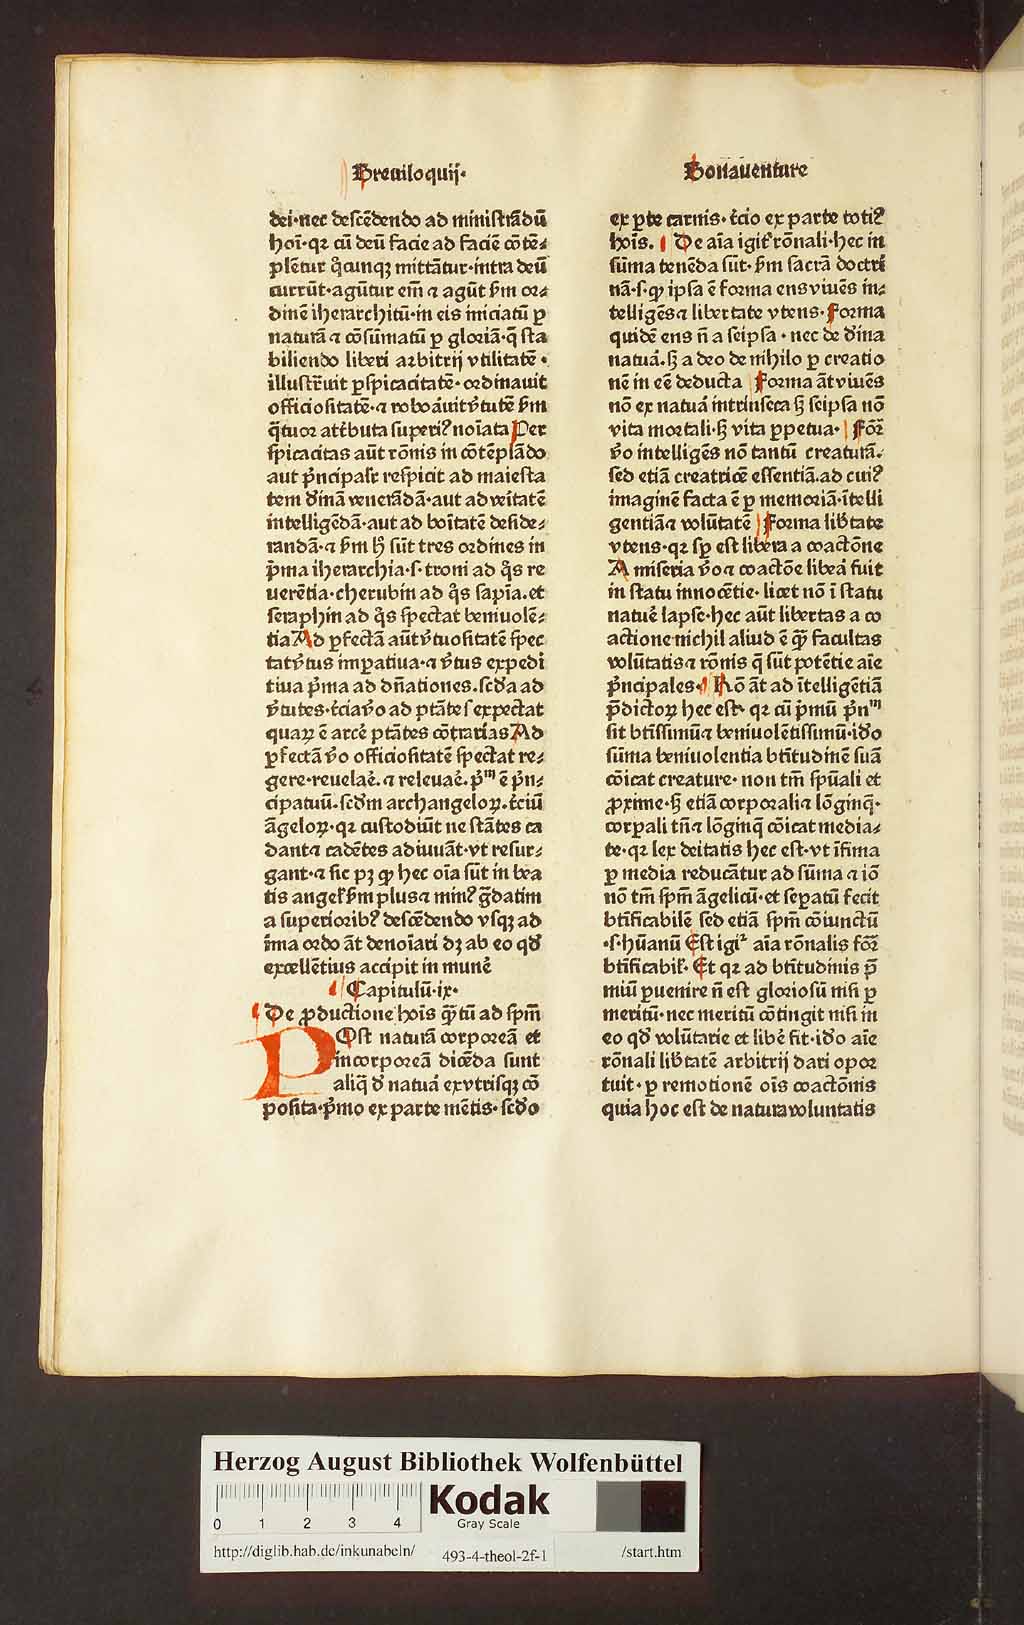 Breuiloquij·
dei·nec descēdendo ad ministrādū
hoī·qꝛ cū deū facie ad faciē cōtē⸗
plētur q̄cunqꝫ mittātur·intra deū
currūt·agūtur em̄ ⁊ agūt ẜm or⸗
dinē iherarchitū·in eis iniciatū ꝑ
naturā ⁊ cōsūmatū ꝑ gloriā·q̄ sta
biliendo liberi arbitrij vtilitatē·
illustr̄uit ꝑspicacitatē·ordinauit
officiositatē·⁊ roboāuit v̄tutē ẜm
q̄tuor attr̄buta superiꝰ noīata Per
spicacitas aūt rōnis in cōtēplādo
aut p̄ncipalr̄ respicit ad maiesta
tem diuīnā venerādā·aut ad veītatē
intelligēdā·aut ad boītatē deside⸗
randā·⁊ ẜm h̄ sūt tres ordines in
p̄ma iherarchia·s·troni ad q̄s re
uerētia·cherubin ad q̄s sapīa·et
seraphin ad q̄s spectat beniuolē⸗
tia Ad ꝑfectā aūt v̄tuositatē spec
tat v̄tus imꝑatiua·⁊ v̄tus expedi
tiua p̄ma ad dn̄ationes·scd̄a ad
v̄tutes·t̄cia v̄o ad ptātes expectat
quaꝝ ē arcē ptātes cōtrarias Ad
ꝑfectā v̄o officiositatē spectat re⸗
gere·reuelaē·⁊ releuaē·p̄ᵐ ē p̄n⸗
cipatuū·scd̄m archangeloꝝ·t̄ciū
āgeloꝝ·qꝛ custodiūt ne stātes ca
dant⁊ cadētes adiuuāt·vt resur⸗
gant·⁊ sic pꝫ ꝙ hec oīa sūt in bea
tis angel̄ ẜm plus⁊ minꝰ ḡdatim
a superioribꝰ descēdendo vsqꝫ ad
īma ordo āt denoīari dꝫ ab eo qd̄
excellētius accipit in munē
Capitulū·ix·
De ꝓductione hoīs quātū ad sp̄m
POst naturā corporeā et
incorporeā dicēda sunt
aliq̄ d̄ natuā ex vtrisqꝫ cō
posita·p̄mo ex parte mētis·scd̄o
Bonauenture
ex ꝑte carnis·t̄cio ex parte totiꝰ
hoīs. De aīa igit̄ rōnali·hec in
sūma tenēda sūt·ẜm sacrā doctri
nā·s·ꝙ ipsa ē forma ens viuēs in⸗
telligēs⁊ libertate vtens·Forma
quidē ens n̄ a seipsa·nec de diīna
natuā·sꝫ a deo de nihilo ꝑ creatio
nē in eē deducta Forma āt viuēs
nō ex natuā intrinseca sꝫ seipsa nō
vita mortali·sꝫ vita ꝑpetua· Forꝭ
v̄o intelligēs nō tantū creaturā·
sed etiā creatricē essentiā·ad cuiꝰ
imaginē facta ē ꝑ memoriā·ītelli
gentiā⁊ volūtatē Forma lib̄tate
vtens·qꝛ sꝑ est libera a coactōne
A miseria v̄o⁊ coactōe libeā fuit
in statu innocētie·licet nō ī statu
natuē lapse·hec aūt libertas a co
actione nichil aliud ē qꝫ facultas
volūtatis⁊ rōnis q̄ sūt potētie aīe
p̄ncipales· Rō āt ad ītelligētiā
p̄dictoꝝ hec est·qꝛ cū p̄mū p̄nᵐ
sit btīssimū⁊ beniuolētissimū·id̄o
sūma beniuolentia btītudinē suā
cōicat creature·non tm̄ sp̄uali et
ꝓxime·sꝫ etiā corporali⁊ lōginq̄·
corꝑali tn̄⁊ lōginq̄ cōicat media⸗
te·qꝛ lex deitatis hec est·vt īfima
ꝑ media reducātur ad sūma ⁊ iō
nō tm̄ sp̄m āgelicū·et seꝑatū fecit
btīficabilē sed etiā sp̄m cōiunctū
·s·hūanū Est igiꝉ aīa rōnalis forꝭ
btīficabil̄·Et qꝛ ad btītudinis p̄
miū ꝑuenire n̄ est gloriosū nisi ꝑ
meritū·nec meritū cōtingit nisi in
eo qd̄ volūtarie et libē fit·id̄o aīe
rōnali lib̄tatē arbitrij dari opoꝛ
tuit·ꝑ remotionē oīs coactōnis
quia hoc est de natura voluntatis
Herzog August Bibliothek Wolfenbüttel
0 1 2 3 4
Kodak
Gray Scale
http://diglib.hab.de/inkunabeln/ 493-4-theol-2f-1 /start.htm